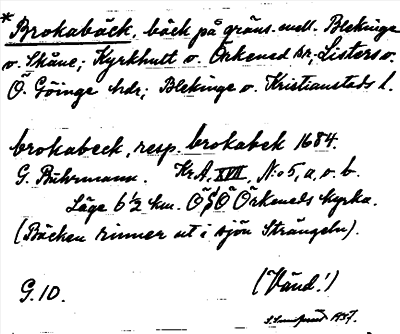 * Brokabäck, bäck på gräns. mell. Blekinge
o. Skåne; Kyrkhult o. Örkened sr; Listers o.
Ö. Göinge hrdr; Blekinge o. Kristianstads l.
brokabeck, resp. brokabek 1684.
G. Buhrmann. Kr.A. XVII, No 5, a, o. b.
Läge 6 1/2 km. ÖSÖ Örkeneds kyrka.
(Bäcken rinner ut i sjön Strängeln).
G.10. (Vänd!)
1937.